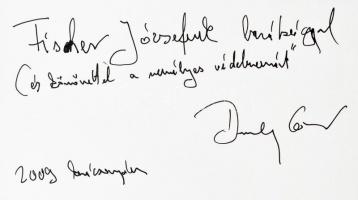 Fischer Józsefnek barátsággal
(és köszönettel a személyes védelmemért"
2009 karácsonyán